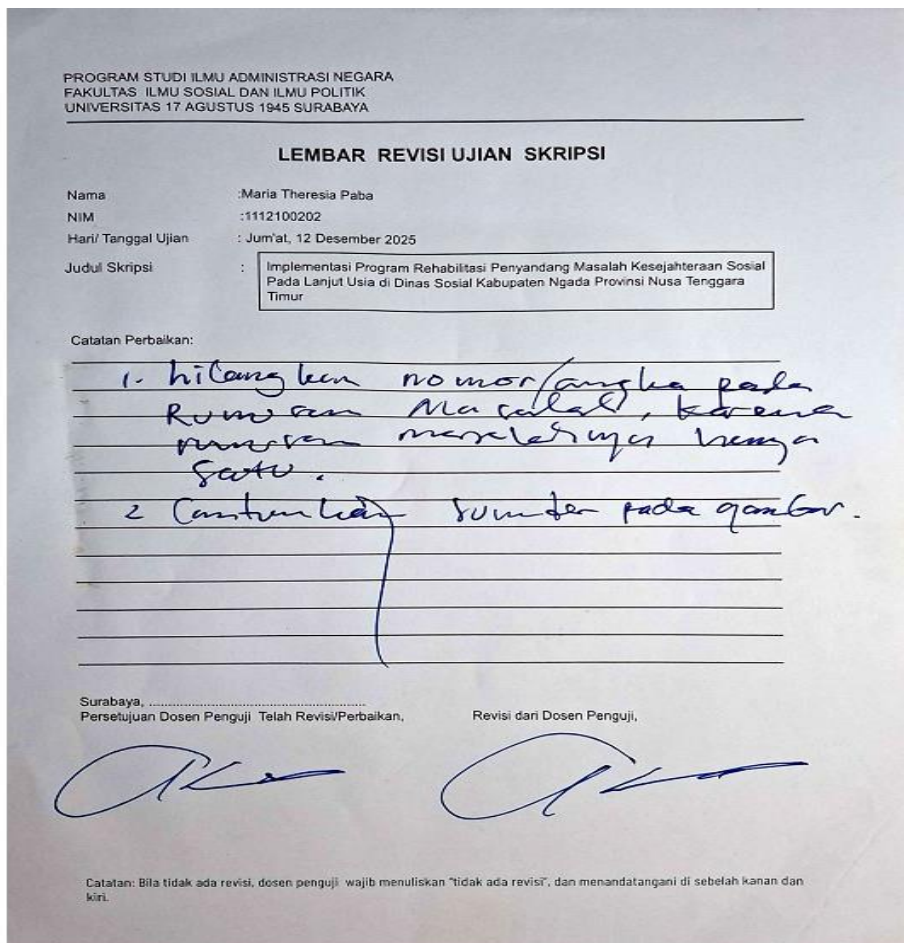 PROGRAM STUDI ILMU ADMINISTRASI NEGARA
FAKULTAS ILMU SOSIAL DAN ILMU POLITIK
UNIVERSITAS 17 AGUSTUS 1945 SURABAYA
LEMBAR REVISI UJIAN SKRIPSI
Nama :Maria Theresia Paba
NIM :1112100202
Hari/ Tanggal Ujian : Jum'at, 12 Desember 2025
Judul Skripsi : Implementasi Program Rehabilitasi Penyandang Masalah Kesejahteraan Sosial
Pada Lanjut Usia di Dinas Sosial Kabupaten Ngada Provinsi Nusa Tenggara
Timur
Catatan Perbaikan:
1. hilangkan nomor/angka pada
Rumusan Masalah, karena
rumusan masalahnya hanya
satu.
2 Cantumkan sumber pada gambar.
Surabaya, ................................................
Persetujuan Dosen Penguji Telah Revisi/Perbaikan, Revisi dari Dosen Penguji,
Catatan: Bila tidak ada revisi, dosen penguji wajib menuliskan "tidak ada revisi", dan menandatangani di sebelah kanan dan
kiri.